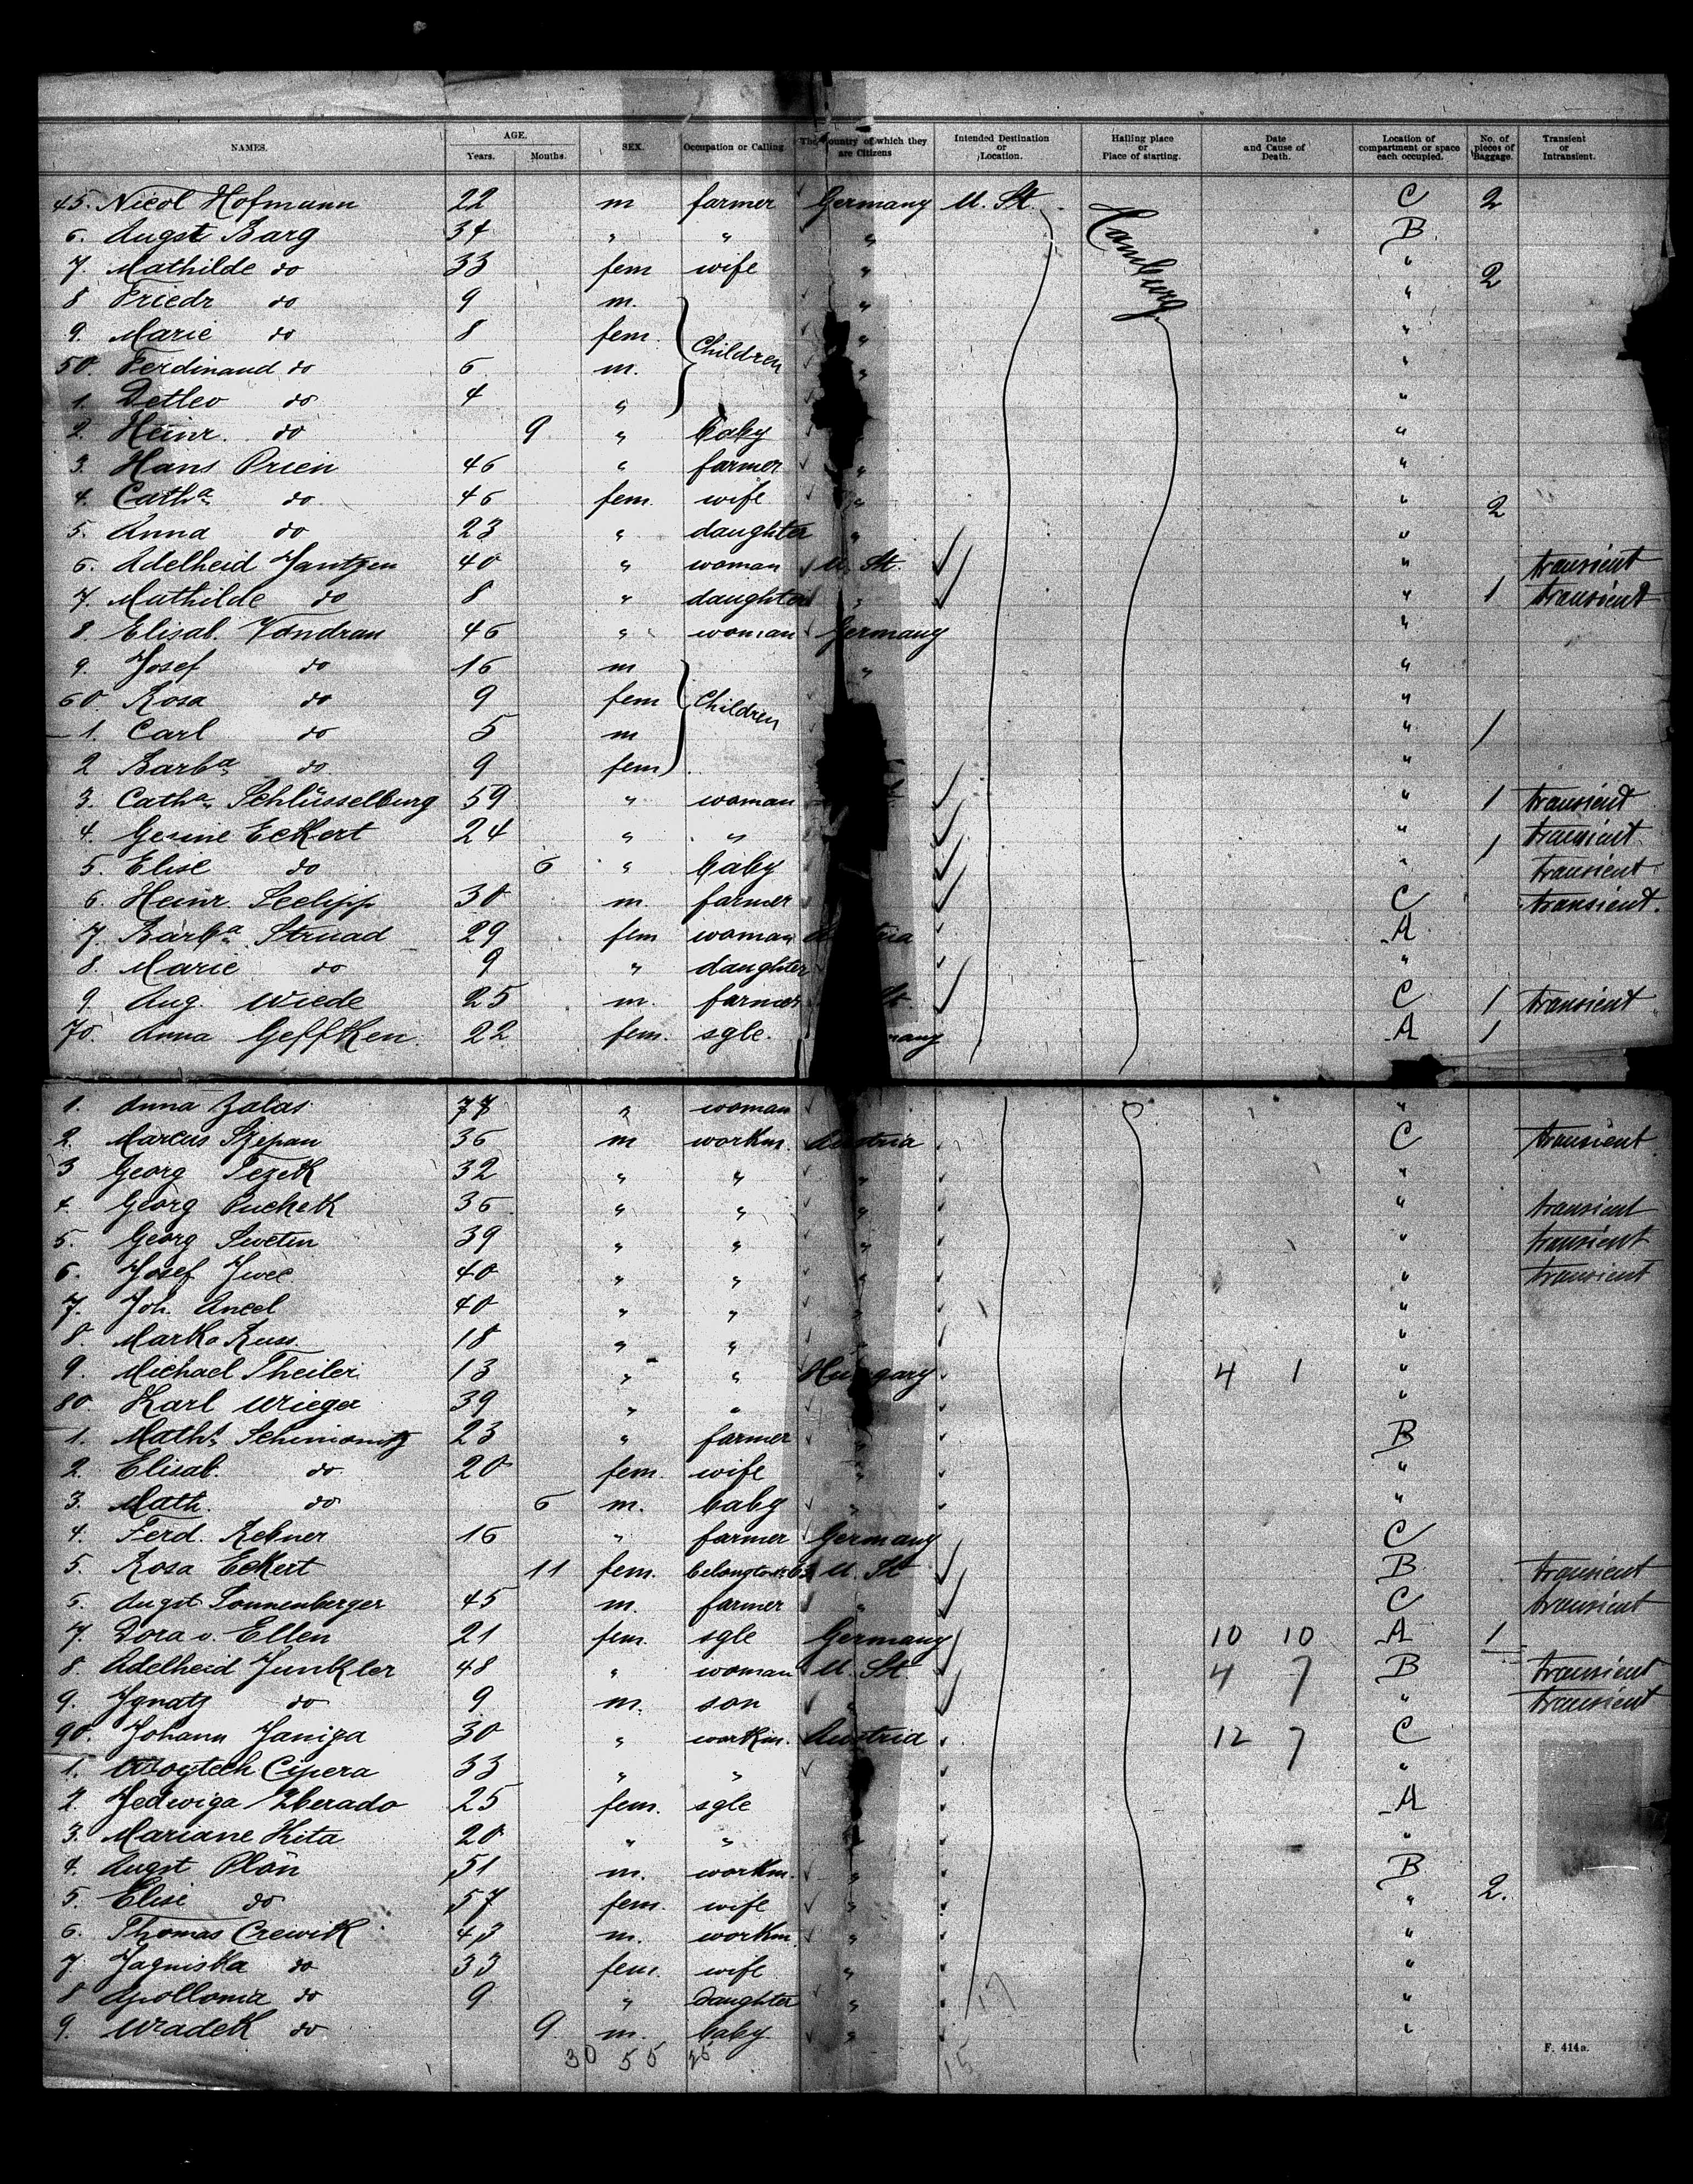 NAMES. AGE. Years. Months. SEX. Occupation or Calling The Country of which they are Citizens Intended Destination or Location. Hailing place or Place of starting. Date and Cause of Death. Location of compartment or space each occupied. No. of pieces of Baggage. Transient or Intransient.
45. Nicol Hofmann 22 m farmer Germany U. St. Hamburg C 2
6. Augst Barg 34 " " " B
7. Mathilde do 33 fem wife " " 2
8 Friedr do 9 m. Children " "
9. Marie do 8 fem. " "
50. Ferdinand do 6 m. " "
1. Detlev do 4 " "
2. Heinr. do 9 " baby "
3. Hans Prien 46 " farmer " "
4. Catha do. 46 fem. wife " " 2
5. Anna do 23 " daughter " "
6. Adelheid Jantzen 40 " woman U. St. " transient
7. Mathilde do 8 " daughter " " 1 transient
8. Elisab. Vondran 46 " woman Germany "
9. Josef do 16 m Children " "
60. Rosa do 9 fem "
1. Carl do 5 m " 1
2 Barba do. 9 fem "
3. Catha Schlüsselburg 59 " woman " 1 transient
4. Gesine Eckert 24 " " " 1 transient
5. Elise do 6 " baby " transient
6. Heinr. Seelipp 30 m. farmer C transient.
7. Barba Struad 29 fem woman A
8. Marie do 9 " daughter "
9. Aug. Wiede 25 m. farmer C 1 transient
70. Anna Geffken 22 fem. sgle. A 1
1. Anna Zalas 77 " woman "
2. Marcus Szepan 36 m workm. Austria C transient
3 Georg Tezek 32 " " " "
4. Georg Puchek 36 " " " " transient
5. Georg Swetin 39 " " " " transient
6. Josef Jvec 40 " " " " transient
7. Joh. Ancel 40 " " " "
8. Marko Russ 18 " " " "
9. Michael Theiler 13 " " Hungary 4 1 "
80. Karl Wrieger 39 " " "
1. Maths 23 " farmer " B
2. Elisab. do 20 fem. wife " "
3. Math. do 6 m. baby " "
4. Ferd. Rebner 16 " farmer Germany C
5. Rosa Eckert 11 fem. belongto 63 U. St B transient
6. Augst Sonnenberger 45 m. farmer " C transient
7. Dora v. Ellen 21 fem. sgle Germany 10 10 A 1
8. Adelheid Junkler 48 " woman U. St 4 7 B transient
9. Jgnatz do 9 m. son " " transient
90. Johann Janiza 30 " workm. Austria 12 7 C
1. Woytech Cipera 33 " " "
2. Jedwiga 25 fem. sgle A
3. Mariane Kita 20 " " "
4. Augst Plön 51 m. workm. " B
5. Elise do 57 fem. wife " " 2.
6. Thomas Crewik 43 m. workm. " "
7. Jagniska do 33 fem. wife " "
8 Apollonia do 9 " daughter " " 17
9. Wradek do 9 m. baby " "
30 55 25 15
F. 414a.